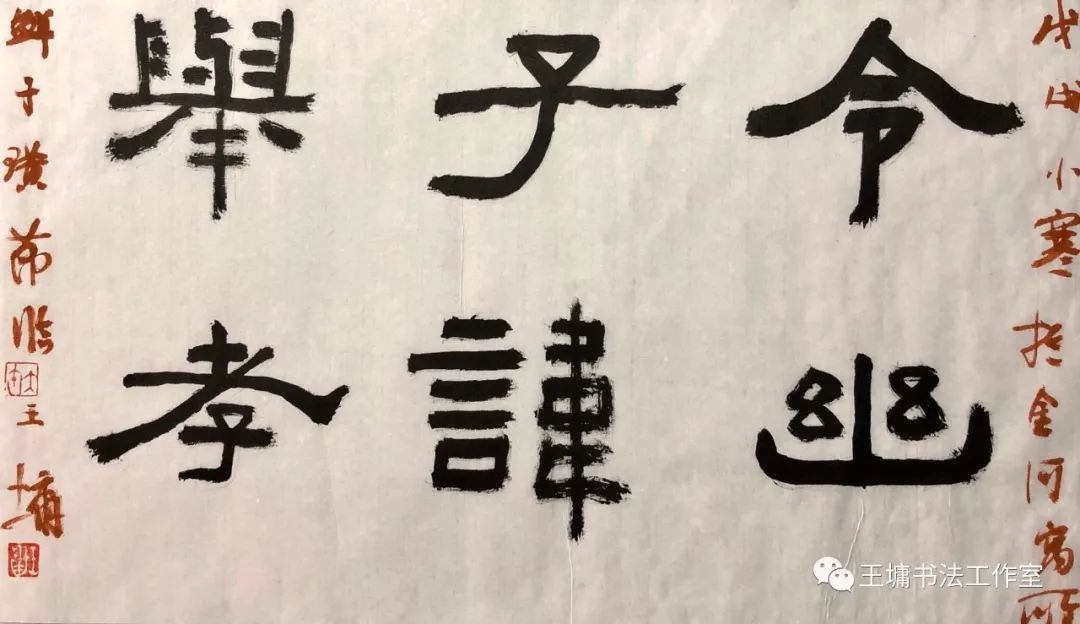 戊戌小寒於金河寓所
令幽
子諱
舉孝
鮮于璜節临王墉
王墉书法工作室